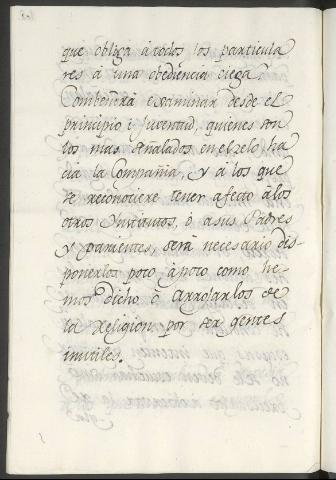 que obliga àtodos los particula
res á una obediencia ciega.
Combendrà examinar desde el
principio i Juventud, quienes son
los mas señalados en el zelo, ha
cia la Compañia, y á los que
se reconociere tener afecto álos
otros Ynstitutos, ò asus Padres
y parientes, serà necesario dis-
ponerlos poco àpoco como he-
mos dicho ò arrojarlos de
la Religion por ser gentes
inutiles.